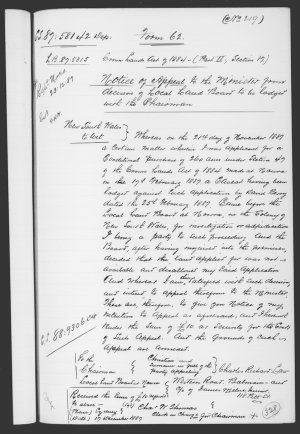 (No 219)
Form 62.
Crown Lands Act of 1884 - (Part II, Section 17)
Notice of Appeal to the Minister from
decision of Local Land Board to be lodged
with the Chairman
New South Wales
to wit } Whereas on the 21st day of November 1887
a certain matter wherein I was applicant for a
Conditional Purchase of 320 acres under Section 47
of the Crown Lands Act of 1884 made at Nowra
on the 17th February 1887, a Caveat having been
lodged against such Application by
dated the 25th February 1887. Came before the
Local Land Board at Nowra, in the Colony of
New South Wales, for investigation or adjudication
I being a party to such proceeding And the
Board, after having inquired into the premises,
decided that the land applied for was not
available and disallowed my said Application
And whereas I am dissatisfied with such decision
and intend to appeal therefrom to the Minister,
These are, therefore, to give you Notice of my
intention to Appeal as aforesaid, and I herewith
tender the sum of £10 as Security for the Costs
of such Appeal. And the Grounds of such
Appeal are annexed.
To the
Chairman
Local Land Board
Nowra
Christian and
Surname in full of the
Party appealing
Charles Richard Law
Western Road, Balmain
Received the sum of £10
Chas W Thomas
17 December 1887
for Chairman
328